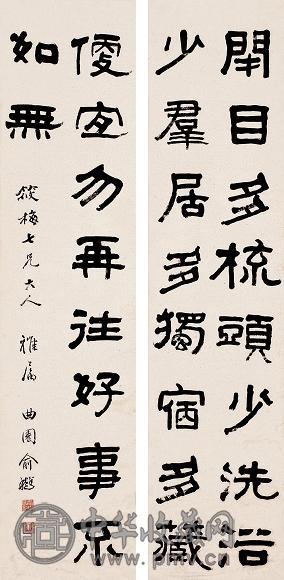 閉目多梳頭少洗浴
少羣居多獨宿多藏
便宜勿再往好事不
如無
筱梅七兄大人 雅屬 曲園俞樾
中华收藏网